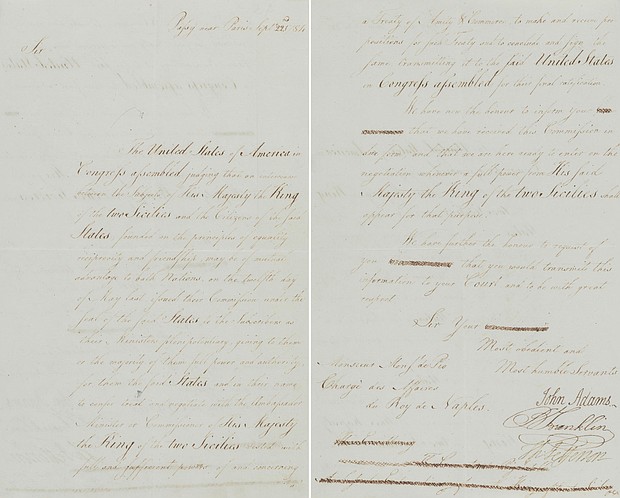 Passy near Paris Sept. 22d 1784
Sir
The United States of America in
Congress assembled judging that an intercourse
between the Subjects of His Majesty the King
of the two Sicilies and the Citizens of the said
States, founded on the principles of equality
reciprocity and friendship, may be of mutual
advantage to both Nations, on the twelfth day
of May last, issued their Commission under the
Seal of the said States, to the Subscribers as
their Ministers plenipotentiary, giving to them
or the majority of them full power and authority
for them the said States and in their name
to confer treat and negotiate with the Ambassador
Minister or Commissioner of His Majesty
the King of the two Sicilies vested with
full and sufficient power of and concerning
a Treaty of Amity & Commerce to make and receive pro
positions for said Treaty and to conclude and sign the
same transmitting it to the said United States
in Congress assembled, for their final ratification
We have now the honour to inform you
that we have received this Commission in
due form and that we are here ready to enter on the
negotiation whenever a full power from His said
Majesty the King of the two Sicilies shall
appear for that purpose.
We have further the honour to request of
you that you would transmit this
information to your Court and to be with great
respect
Sir Your
Most obedient and
Most humble servants
Monsieur de Pio
Chargé des Affaires
du Roy de Naples.
John Adams
B Franklin
Th Jefferson